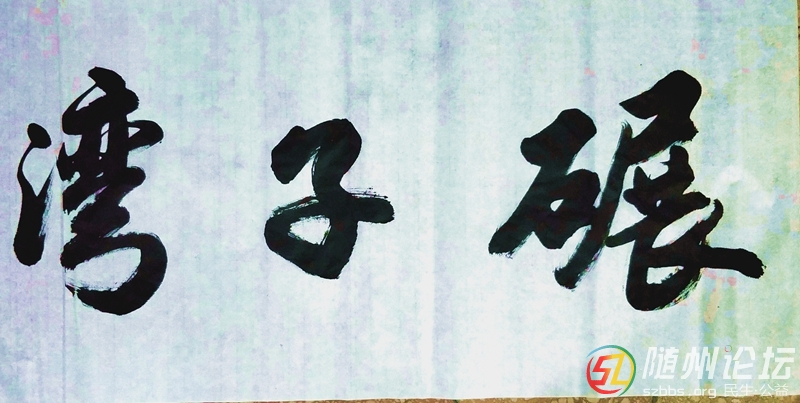 碾子湾
随州论坛
szbbs.org 民生·公益